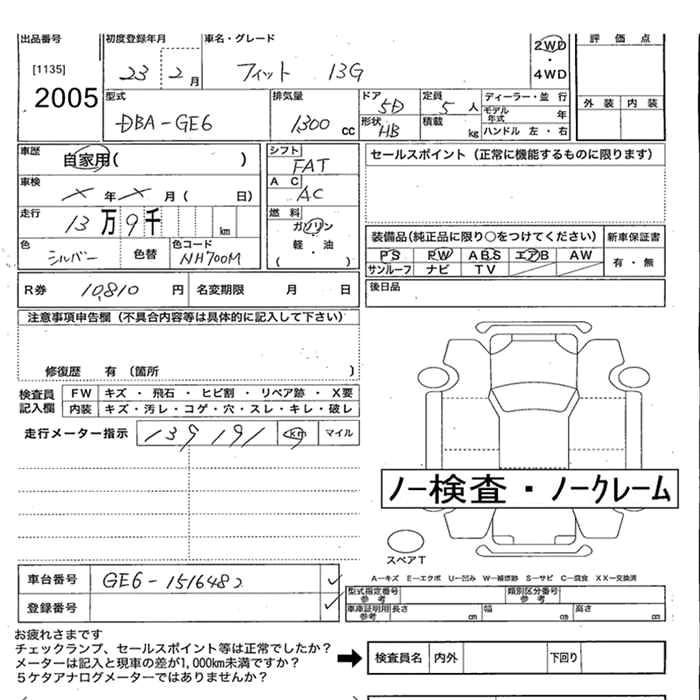 出品番号 初度登録年月 車名・グレード 評価点
[1135] 23 2月 フィット 13G 2WD・4WD
2005
型式 排気量 ドア 5D 定員 5人 ディーラー・並行
DBA-GE6 1300cc 形状 HB 積載 kg モデル年式 年 外装 内装
ハンドル 左・右
車歴 自家用( ) シフト FAT セールスポイント(正常に機能するものに限ります)
車検 X年X月( 日) AC AC
走行 13万9千 km 燃料 ガソリン 装備品(純正品に限り○をつけてください) 新車保証書
色 シルバー 色替 色コード NH700M 軽・油 ( ) PS PW ABS エアB AW 有・無
サンルーフ ナビ TV
R券 10,810円 名変期限 月 日 後日品
注意事項申告欄(不具合内容等は具体的に記入して下さい)
修復歴 有(箇所 )
検査員記入欄 FW キズ・飛石・ヒビ割・リペア跡・X要
内装 キズ・汚レ・コゲ・穴・スレ・キレ・破レ
走行メーター指示 139191 km マイル
ノー検査・ノークレーム
スペアT
A−キズ E−エクボ U−凹み W−補修跡 S−サビ C−腐食 XX−交換済
車台番号 GE6-1516482 型式指定番号 参考 類別区分番号 参考
登録番号 車庫証明用 参考 長さ cm 幅 cm 高さ cm
お疲れさまです
チェックランプ、セールスポイント等は正常でしたか?
メーターは記入と現車の差が1,000km未満ですか? 検査員名 内外 下回り
5ケタアナログメーターではありませんか?